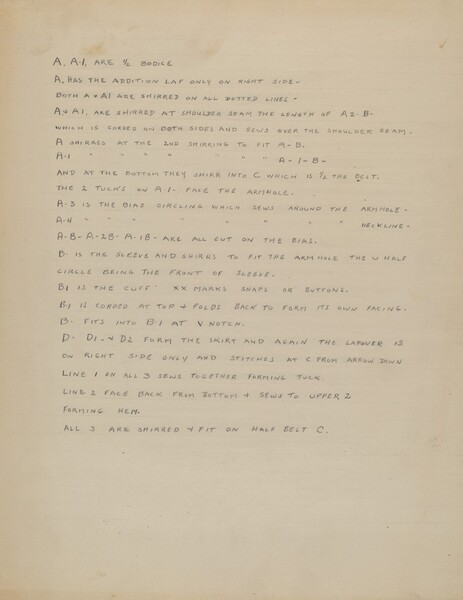 A, A-1, ARE ½ BODICE
A, HAS THE ADDITION LAP ONLY ON RIGHT SIDE-
BOTH A & A1 ARE SHIRRED ON ALL DOTTED LINES -
A & A1, ARE SHIRRED AT SHOULDER SEAM THE LENGTH OF A2-B-
WHICH IS CORDED ON BOTH SIDES AND SEWS OVER THE SHOULDER SEAM.
A SHIRRES AT THE 2ND SHIRRING TO FIT A-B.
A-1 " " " " " " " A-1-B-
AND AT THE BOTTOM THEY SHIRR INTO C WHICH IS ½ THE BELT.
THE 2 TUCK'S ON A-1- FACE THE ARMHOLE.
A-3 IS THE BIAS CIRCLING WHICH SEWS AROUND THE ARMHOLE-
A-4 " " " " " " " NECKLINE-
A-B- A-2B- A-1B- ARE ALL CUT ON THE BIAS.
B- IS THE SLEEVE AND SHIRRS TO FIT THE ARMHOLE THE U HALF
CIRCLE BEING THE FRONT OF SLEEVE.
B1 IS THE CUFF XX MARKS SNAPS OR BUTTONS.
B-1 IS CORDED AT TOP & FOLDS BACK TO FORM ITS OWN FACING.
B- FITS INTO B-1 AT V NOTCH.
D- D1-& D2 FORM THE SKIRT AND AGAIN THE LAPOVER IS
ON RIGHT SIDE ONLY AND STITCHES AT C FROM ARROW DOWN
LINE 1 ON ALL 3 SEWS TOGETHER FORMING TUCK.
LINE 2 FACE BACK FROM BOTTOM & SEWS TO UPPER 2
FORMING HEM.
ALL 3 ARE SHIRRED & FIT ON HALF BELT C.